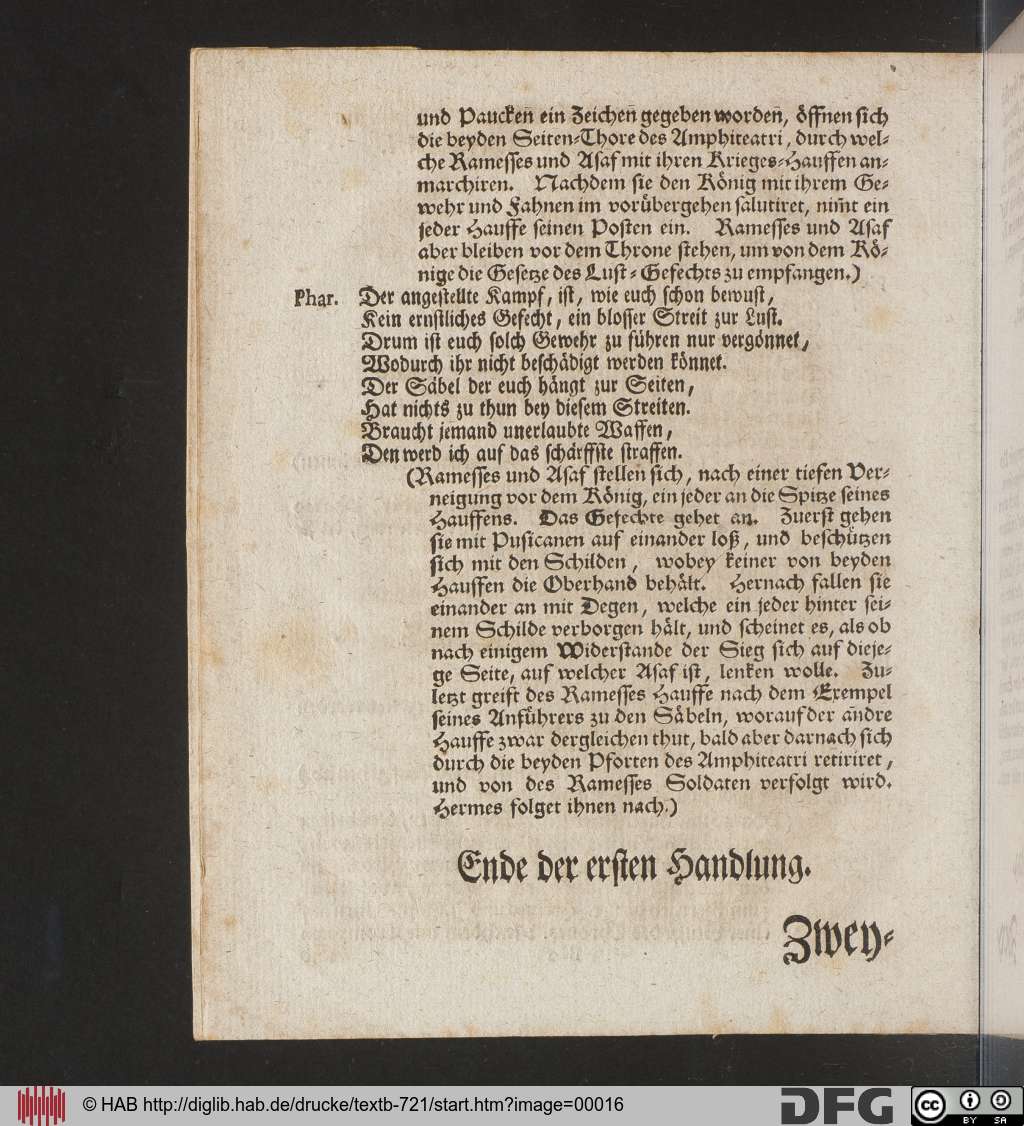 und Pauckeñ ein Zeicheñ gegeben wordeñ, öffnen sich
die beyden Seiten-Thore des Amphiteatri, durch wel-
che Ramesses und Asaf mit ihren Krieges-Hauffen an-
marchiren. Nachdem sie den König mit ihrem Ge-
wehr und Fahnen im vorübergehen salutiret, nim̃t ein
jeder Hauffe seinen Posten ein. Ramesses und Asaf
aber bleiben vor dem Throne stehen, um von dem Kö-
nige die Gesetze des Lust-Gefechts zu empfangen.)
Phar. Der angestellte Kampf, ist, wie euch schon bewust,
Kein ernstliches Gefecht, ein blosser Streit zur Lust.
Drum ist euch solch Gewehr zu führen nur vergönnet,
Wodurch ihr nicht beschädigt werden könnet.
Der Säbel der euch hängt zur Seiten,
Hat nichts zu thun bey diesem Streiten.
Braucht jemand unerlaubte Waffen,
Den werd ich auf das schärffste straffen.
(Ramesses und Asaf stellen sich, nach einer tiefen Ver-
neigung vor dem König, ein jeder an die Spitze seines
Hauffens. Das Gefechte gehet an. Zuerst gehen
sie mit Pusicanen auf einander loß, und beschützen
sich mit den Schilden, wobey keiner von beyden
Hauffen die Oberhand behält. Hernach fallen sie
einander an mit Degen, welche ein jeder hinter sei-
nem Schilde verborgen hält, und scheinet es, als ob
nach einigem Widerstande der Sieg sich auf dieje-
ge Seite, auf welcher Asaf ist, lenken wolle. Zu-
letzt greift des Ramesses Hauffe nach dem Exempel
seines Anführers zu den Säbeln, worauf der añdre
Hauffe zwar dergleichen thut, bald aber darnach sich
durch die beyden Pforten des Amphiteatri retiriret,
und von des Ramesses Soldaten verfolgt wird.
Hermes folget ihnen nach.)
Ende der ersten Handlung.
Zwey-
© HAB http://diglib.hab.de/drucke/textb-721/start.htm?image=00016
DFG
cc
BY SA